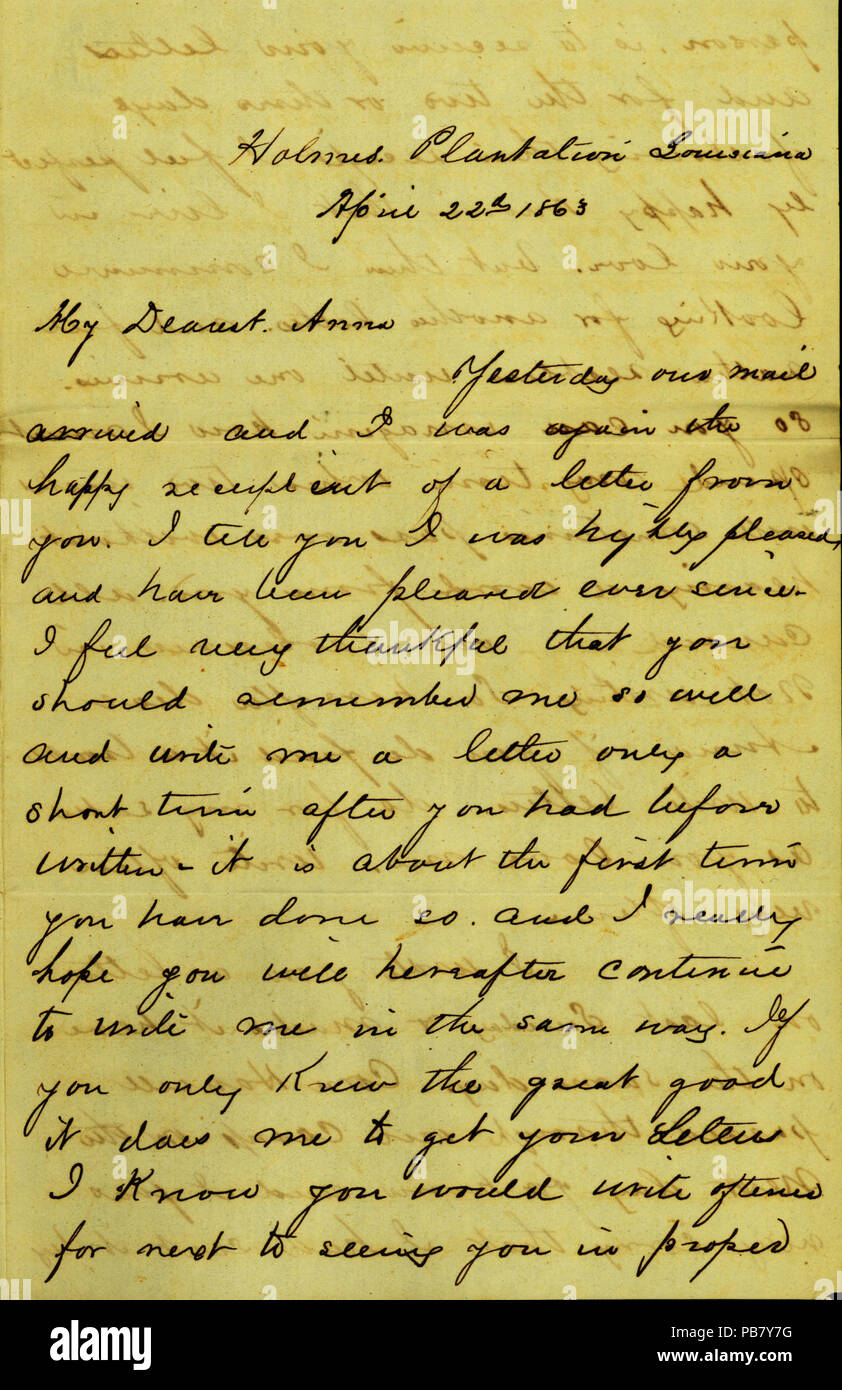 Holmes. Plantation Louisiana
April 22d 1863
My Dearest. Anna
Yesterday our mail
arrived and I was again the
happy receipient of a letter from
you. I tell you I was highly pleased,
and have been pleased ever since-
I feel very thankful that you
should remember me so well
and write me a letter only a
short time after you had before
written - it is about the first time
you have done so. and I really
hope you will hereafter continue
to write me in the same way. If
you only Knew the great good
it does me to get your Letters
I Know you would write oftener
for next to seeing you in proper
alamy
Image ID: PB7Y7G
www.alamy.com